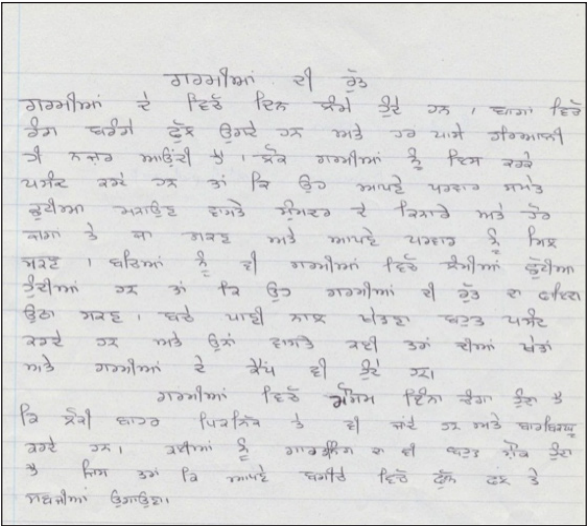 ਗਰਮੀਆਂ ਦੀ ਰੁੱਤ
ਗਰਮੀਆਂ ਦੇ ਵਿਚੋਂ ਦਿਨ ਲੰਮੇ ਹੁੰਦੇ ਹਨ । ਬਾਗਾਂ ਵਿਚੋਂ
ਰੰਗ ਬਰੰਗੇ ਫੁੱਲ ਉਗਦੇ ਹਨ ਅਤੇ ਹਰ ਪਾਸੇ ਹਰਿਆਲੀ
ਹੀ ਨਜ਼ਰ ਆਉਂਦੀ ਹੈ । ਲੋਕ ਗਰਮੀਆਂ ਨੂੰ ਇਸ ਕਰਕੇ
ਪਸੰਦ ਕਰਦੇ ਹਨ ਤਾਂ ਕਿ ਉਹ ਆਪਣੇ ਪਰਵਾਰ ਸਮੇਤ
ਛੁਟੀਆ ਮਨਾਉਣ ਵਾਸਤੇ ਸਮੁੰਦਰ ਦੇ ਕਿਨਾਰੇ ਅਤੇ ਹੋਰ
ਜਾਗਾ ਤੇ ਜਾ ਸਕਣ ਅਤੇ ਆਪਣੇ ਪਰਵਾਰ ਨੂੰ ਮਿਲ
ਸਕਣ । ਬਚਿਆਂ ਨੂੰ ਵੀ ਗਰਮੀਆਂ ਵਿਚੋਂ ਲੰਮੀਆਂ ਛੁੱਟੀਆ
ਹੁੰਦੀਆਂ ਹਨ ਤਾਂ ਕਿ ਉਹ ਗਰਮੀਆਂ ਦੀ ਰੁੱਤ ਦਾ ਫਾਇਦਾ
ਉਠਾ ਸਕਣ । ਬਚੇ ਪਾਣੀ ਨਾਲ ਖੇਡਣਾ ਬਹੁਤ ਪਸੰਦ
ਕਰਦੇ ਹਨ ਅਤੇ ਉਨਾਂ ਵਾਸਤੇ ਕਈ ਤਰਾਂ ਦੀਆਂ ਖੇਡਾਂ
ਅਤੇ ਗਰਮੀਆਂ ਦੇ ਕੈਂਪ ਵੀ ਹੁੰਦੇ ਹਨ।
ਗਰਮੀਆਂ ਵਿਚੋਂ ਮੌਸਮ ਇੰਨਾ ਚੰਗਾ ਹੁੰਦਾ ਹੈ
ਕਿ ਲੋਕੀ ਬਾਹਰ ਪਿਕਨਿੱਕ ਤੇ ਵੀ ਜਾਂਦੇ ਹਨ ਅਤੇ ਬਾਰਬਿਕਯੂ
ਕਰਦੇ ਹਨ। ਕਈਆਂ ਨੂੰ ਗਾਰਡਨਿੰਗ ਦਾ ਵੀ ਬਹੁਤ ਸ਼ੌਕ ਹੁੰਦਾ
ਹੈ ਜਿਸ ਤਰਾਂ ਕਿ ਆਪਣੇ ਬਗੀਚੇ ਵਿਚੋਂ ਫੁੱਲ ਫਲ ਤੇ
ਸਬਜੀਆਂ ਉਗਾਉਣਾ।